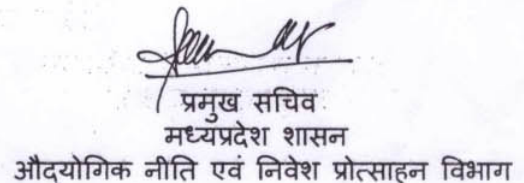 प्रमुख सचिव
मध्यप्रदेश शासन
औदयोगिक नीति एवं निवेश प्रोत्साहन विभाग